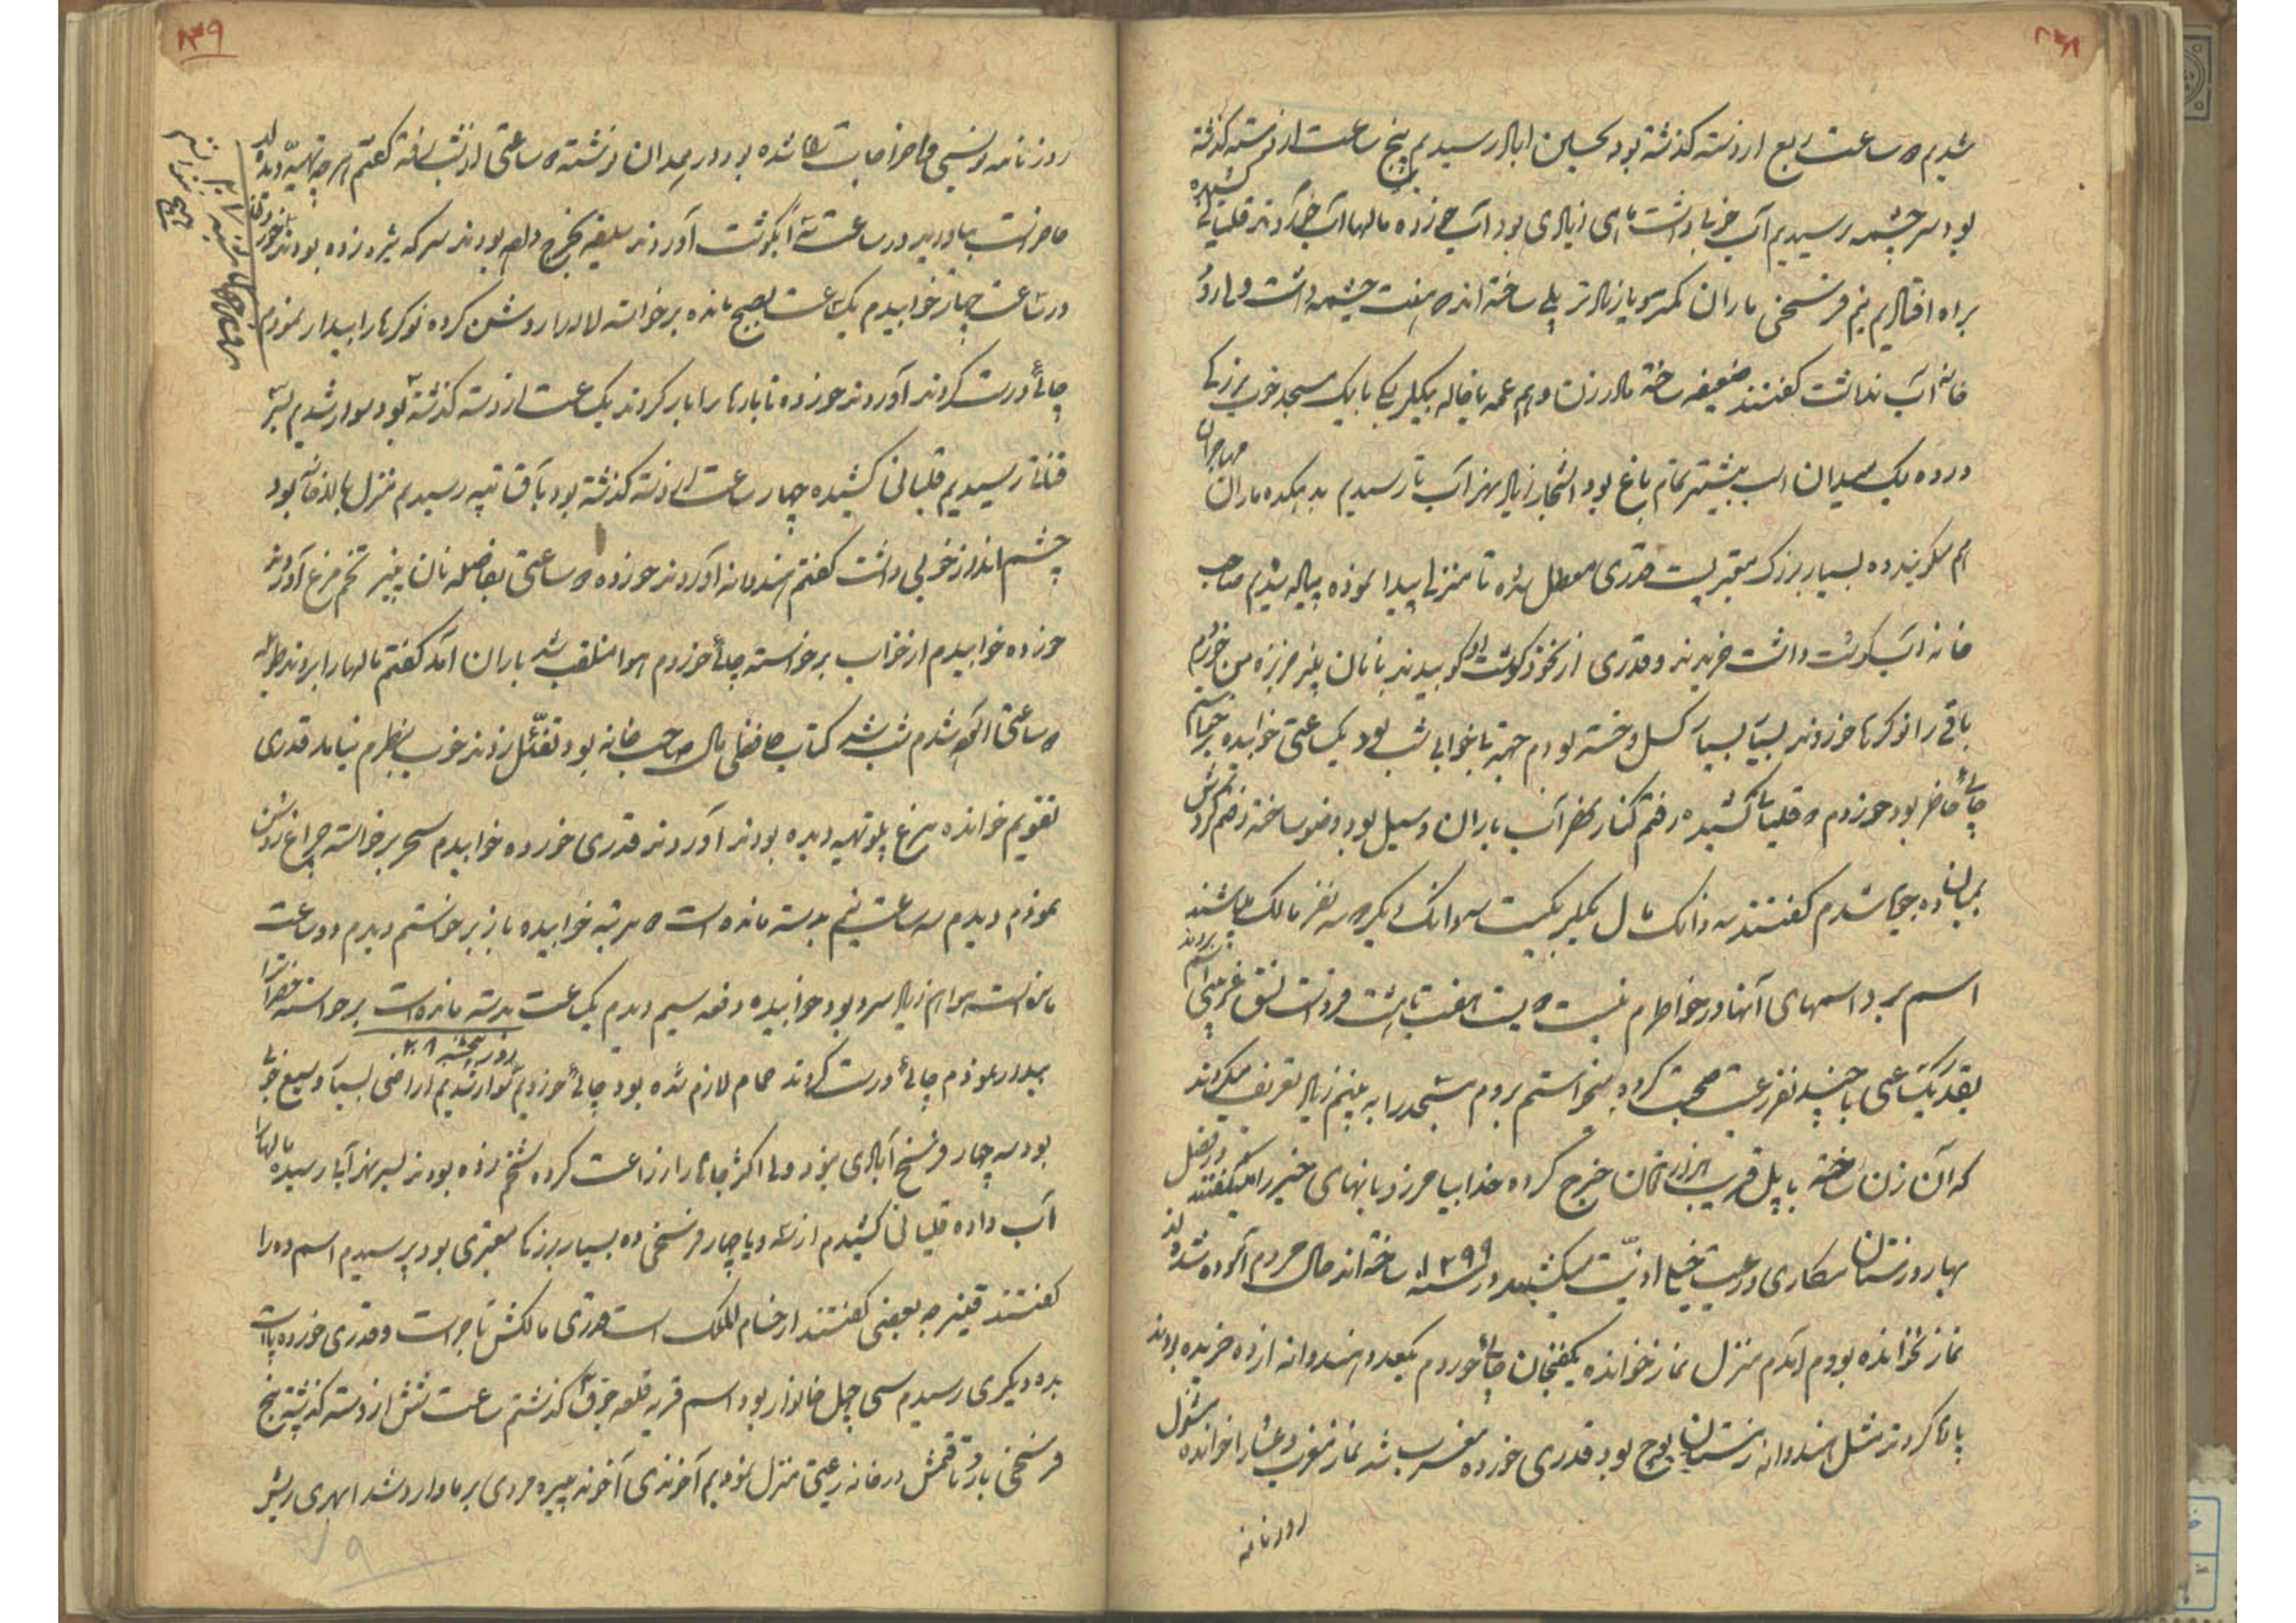 شدیم ساعت ربع از دسته گذشته بود بحسین اباد رسیدیم پنج ساعت از دسته گذشته
بود سر چشمه رسیدیم آب خوبی داشت ماهی زیادی بود آب خورده مالها آب خوردند قلیانی کشیده
براه افتادیم نیم فرسخی ماران کمتر و یا زیادتر پلی ساخته اند هفت چشمه داشت ولی رود
خانه آب نداشت گفتند ضعیفه ساخته مادر زن و هم عمه یا خاله بیگلربیگی با یک مسجد خوب بزرگی
در ده یک میدان اسب بیشتر تمام باغ بود اشجار زیاد نهر آب تا رسیدیم بدهکده ماران مهاجران
هم میگویند ده بسیار بزرگ معتبریست قدری معطل شده تا منزلی پیدا نموده پیاده شدیم صاحب
خانه آب گوشت داشت خریدند و قدری از نخود گوشت او کوبیدند با نان پنیر خربزه من خوردم
باقی را نوکرها خوردند بسیار بسیار کسل و خسته بودم جهة بیخوابی شب بود یکساعتی خوابیده برخواستم
چائی حاضر بود خوردم قلیان کشیده رفتم کنار نهر آب باران و سیل بود وضو ساخته رفتم گردش
میان ده جویا شدم گفتند سه دانگ مال بیگلربیگیست سه دانگ دیگر سه نفر مالک میباشند
اسم برد اسمهای آنها در خواطرم نیست
بقدر یکساعتی با چند نفر رعیت صحبت کرده میخواستم بروم مسجد را به بینم زیاد تعریف میکردند
که آن زن ساخته با پل قریب هزار تومان خرج کرده خدا بیامرزد بانیهای خیر را میگفتند در فصل
بهار و زمستان مکاری و رعیت خیلی اذیت میکشید در سنه ۱۲۹۹ ساخته اند حال مردم آسوده شده اند
نماز نخوانده بودم آمدم منزل نماز خوانده یکفنجان چائی خوردم یکعدد هندوانه از ده خریده بودند
پاره کردند مثل هندوانه زمستان پوچ بود قدری خورده مغرب شد نماز مغرب و عشا را خوانده مشغول
روزنامه
روزنامه نویسی و اخراجات شده بود در میدان نشسته ساعتی از شب رفته گفتم هر چه تهیه دیده اند
حاضر است بیاورید در ساعت سه آبگوشت آوردند سلیقه بخرج داده بودند سرکه شیره زده بودند خورده
در ساعت چهار خوابیدم یک ساعت بصبح مانده برخواسته لاله را روشن کرده نوکرها را بیدار نمودم
چائی درست کردند آوردند خورده تا بارها را بار کردند یک ساعت از دسته گذشته بود سوار شدیم بسر
قنات رسیدیم قلیانی کشیده چهار ساعت از دسته گذشته بود بآق تپه رسیدیم منزل ما بالاخانه بود
چشم انداز خوبی داشت گفتم هندوانه آوردند خورده ساعتی بفاصله نان پنیر تخم مرغ آوردند
خورده خوابیدم از خواب برخواسته چائی خوردم هوا منقلب شد باران آمد گفتم مالها را بردند طویله
ساعتی شدم شب شد کتاب حافظی مال صاحب خانه بود تفئل زدند خوب بنظرم نیامد قدری
تقویم خوانده مرغ پلو تهیه دیده بودند آوردند قدری خورده خوابیدم سحر برخواسته چراغ روشن
نمودم دیدم سه ساعت نیم بدسته مانده است مرتبه خوابیده باز برخواستم دیدم دو ساعت
مانده است هوا هم زیاد سرد بود خوابیده دفعه سیم دیدم یک ساعت بدسته مانده است برخواسته
روز پنجشنبه ۲۸
بیدار نمودم چائی درست کردند حمام لازم شده بود چائی خوردیم سوار شدیم اراضی بسیار وسیع خوبی
بود سه چهار فرسخ آبادی نبود ولی اکثر جاها را زراعت کرده شخم زده بودند بسر نهر آبی رسیده مالها را
آب داده قلیانی کشیدم از سه و یا چهار فرسخی ده بسیار بزرگ معتبری بود پرسیدم اسم ده را
گفتند قینرجه بعضی گفتند از حسام الملک است قدری مالکش تاجر است و قدری خورده پا است
بده دیگری رسیدم سی چهل خانوار بود اسم قریه قلعه جوق گذشتم ساعت شش از دسته گذشته پنج
فرسخی بار وقاقمش در خانه رعیتی منزل نمودیم آخوندی آخوند پیره مردی بر ما وارد شد ابهری ریش